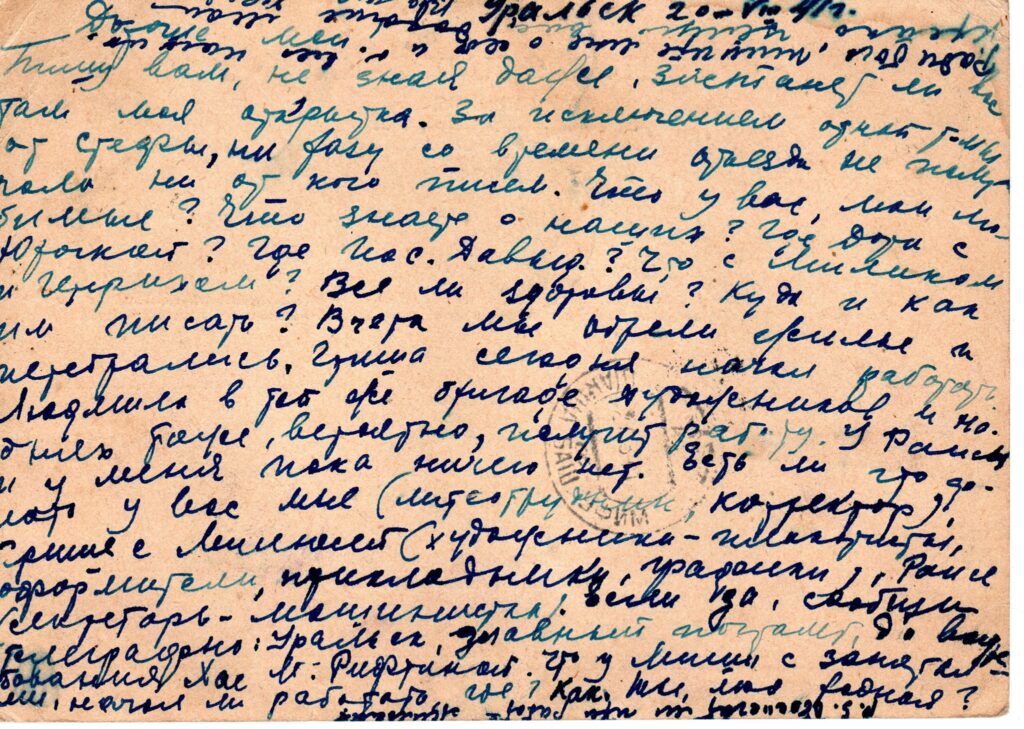 Уральск 20-VIII 41 г.
Дорогие мои
Пишу вам, не зная даже, застанет ли вас
там моя открытка. За исключением одной
от Стефы, ни разу со времени отъезда не полу-
чала ни от кого писем. Что у вас, мои лю-
бимые? Что знаете о наших? Где Дора с
Юрочкой? Где Иос. Давыд.? Что с Миликом
и Генрихом? Все ли здоровы? Куда и как
им писать? Вчера мы обрели жилье и
перебрались. Гриша сегодня начал работать
Людмила в той же бригаде художников и на-
днях тоже, вероятно, получит работу. У Раисы
и у меня пока ничего нет. Есть ли что де-
лать у вас мне (литсотрудник, корректор)?
Грише с Милочкой (художники-плакатисты,
оформители, прикладники, графики), Раисе
(секретарь-машинистка). Если да, сообщи
телеграфно: Уральск, главный почтамт, до востре-
бования Хае М. Рифтиной. Что у Миши с заняти-
ями, начал ли работать, где? Как ты, моя родная?